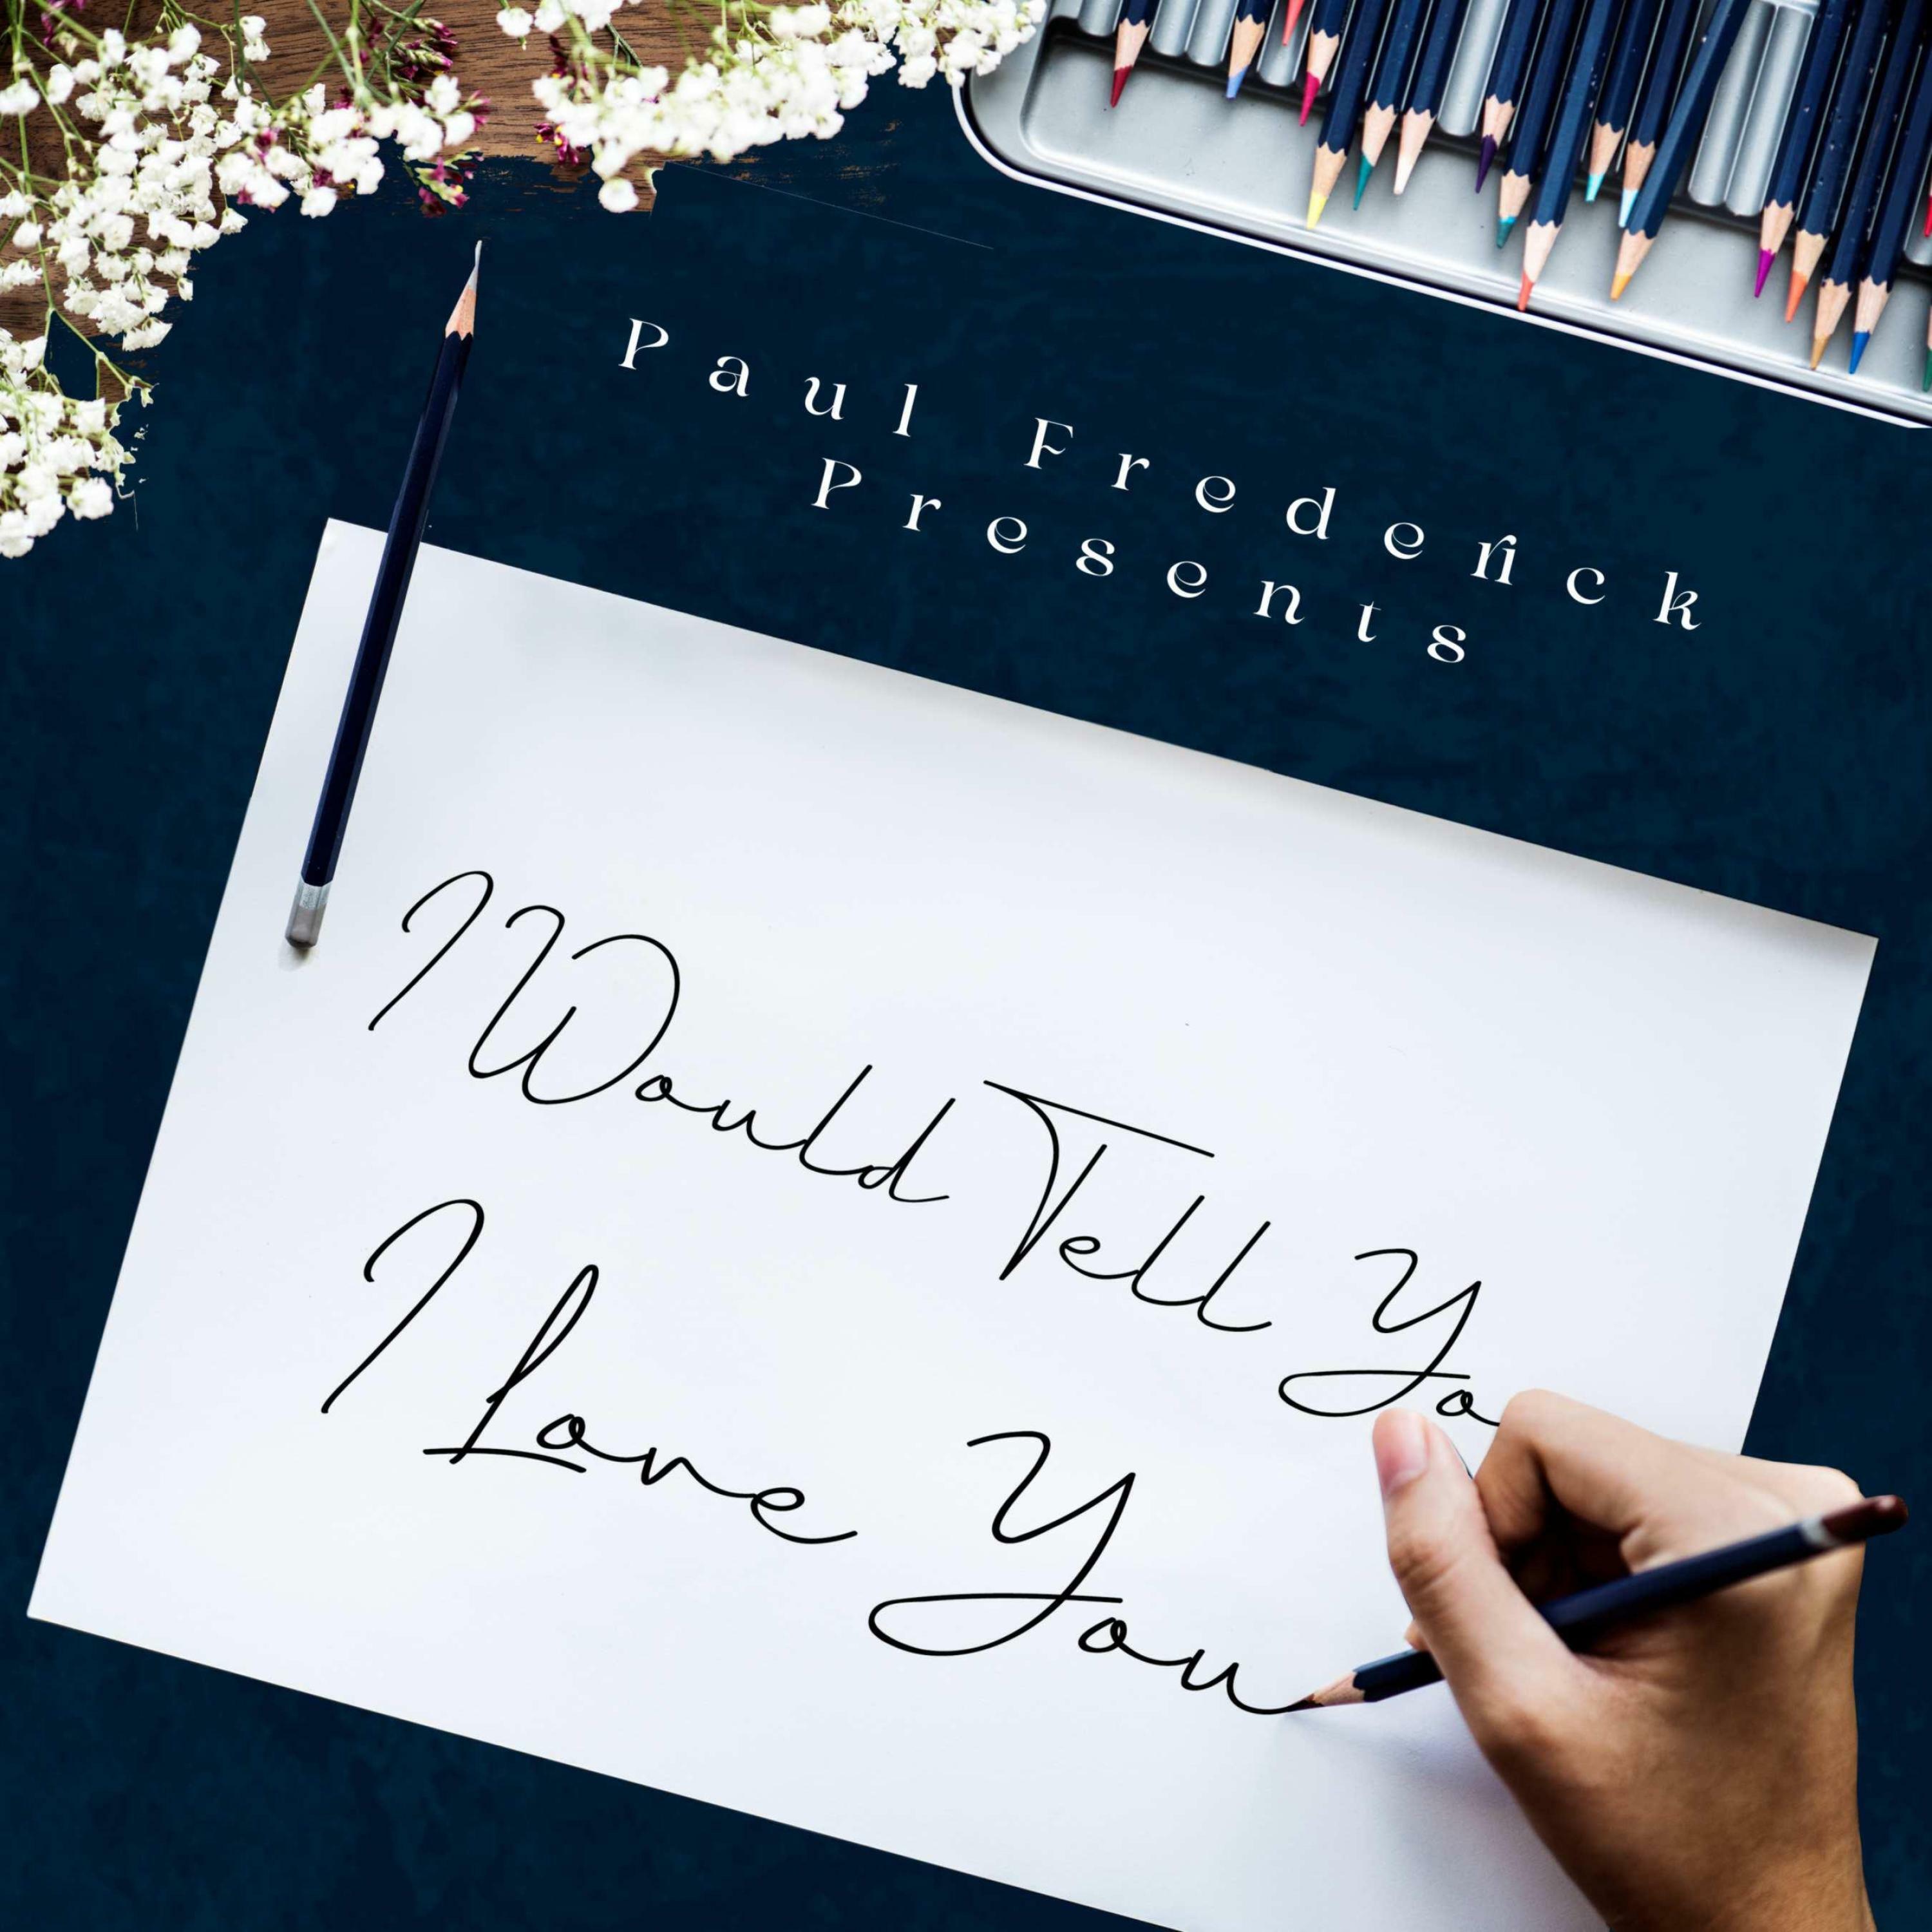 Paul Frederick
Presents
I Would Tell Yo
I Love You